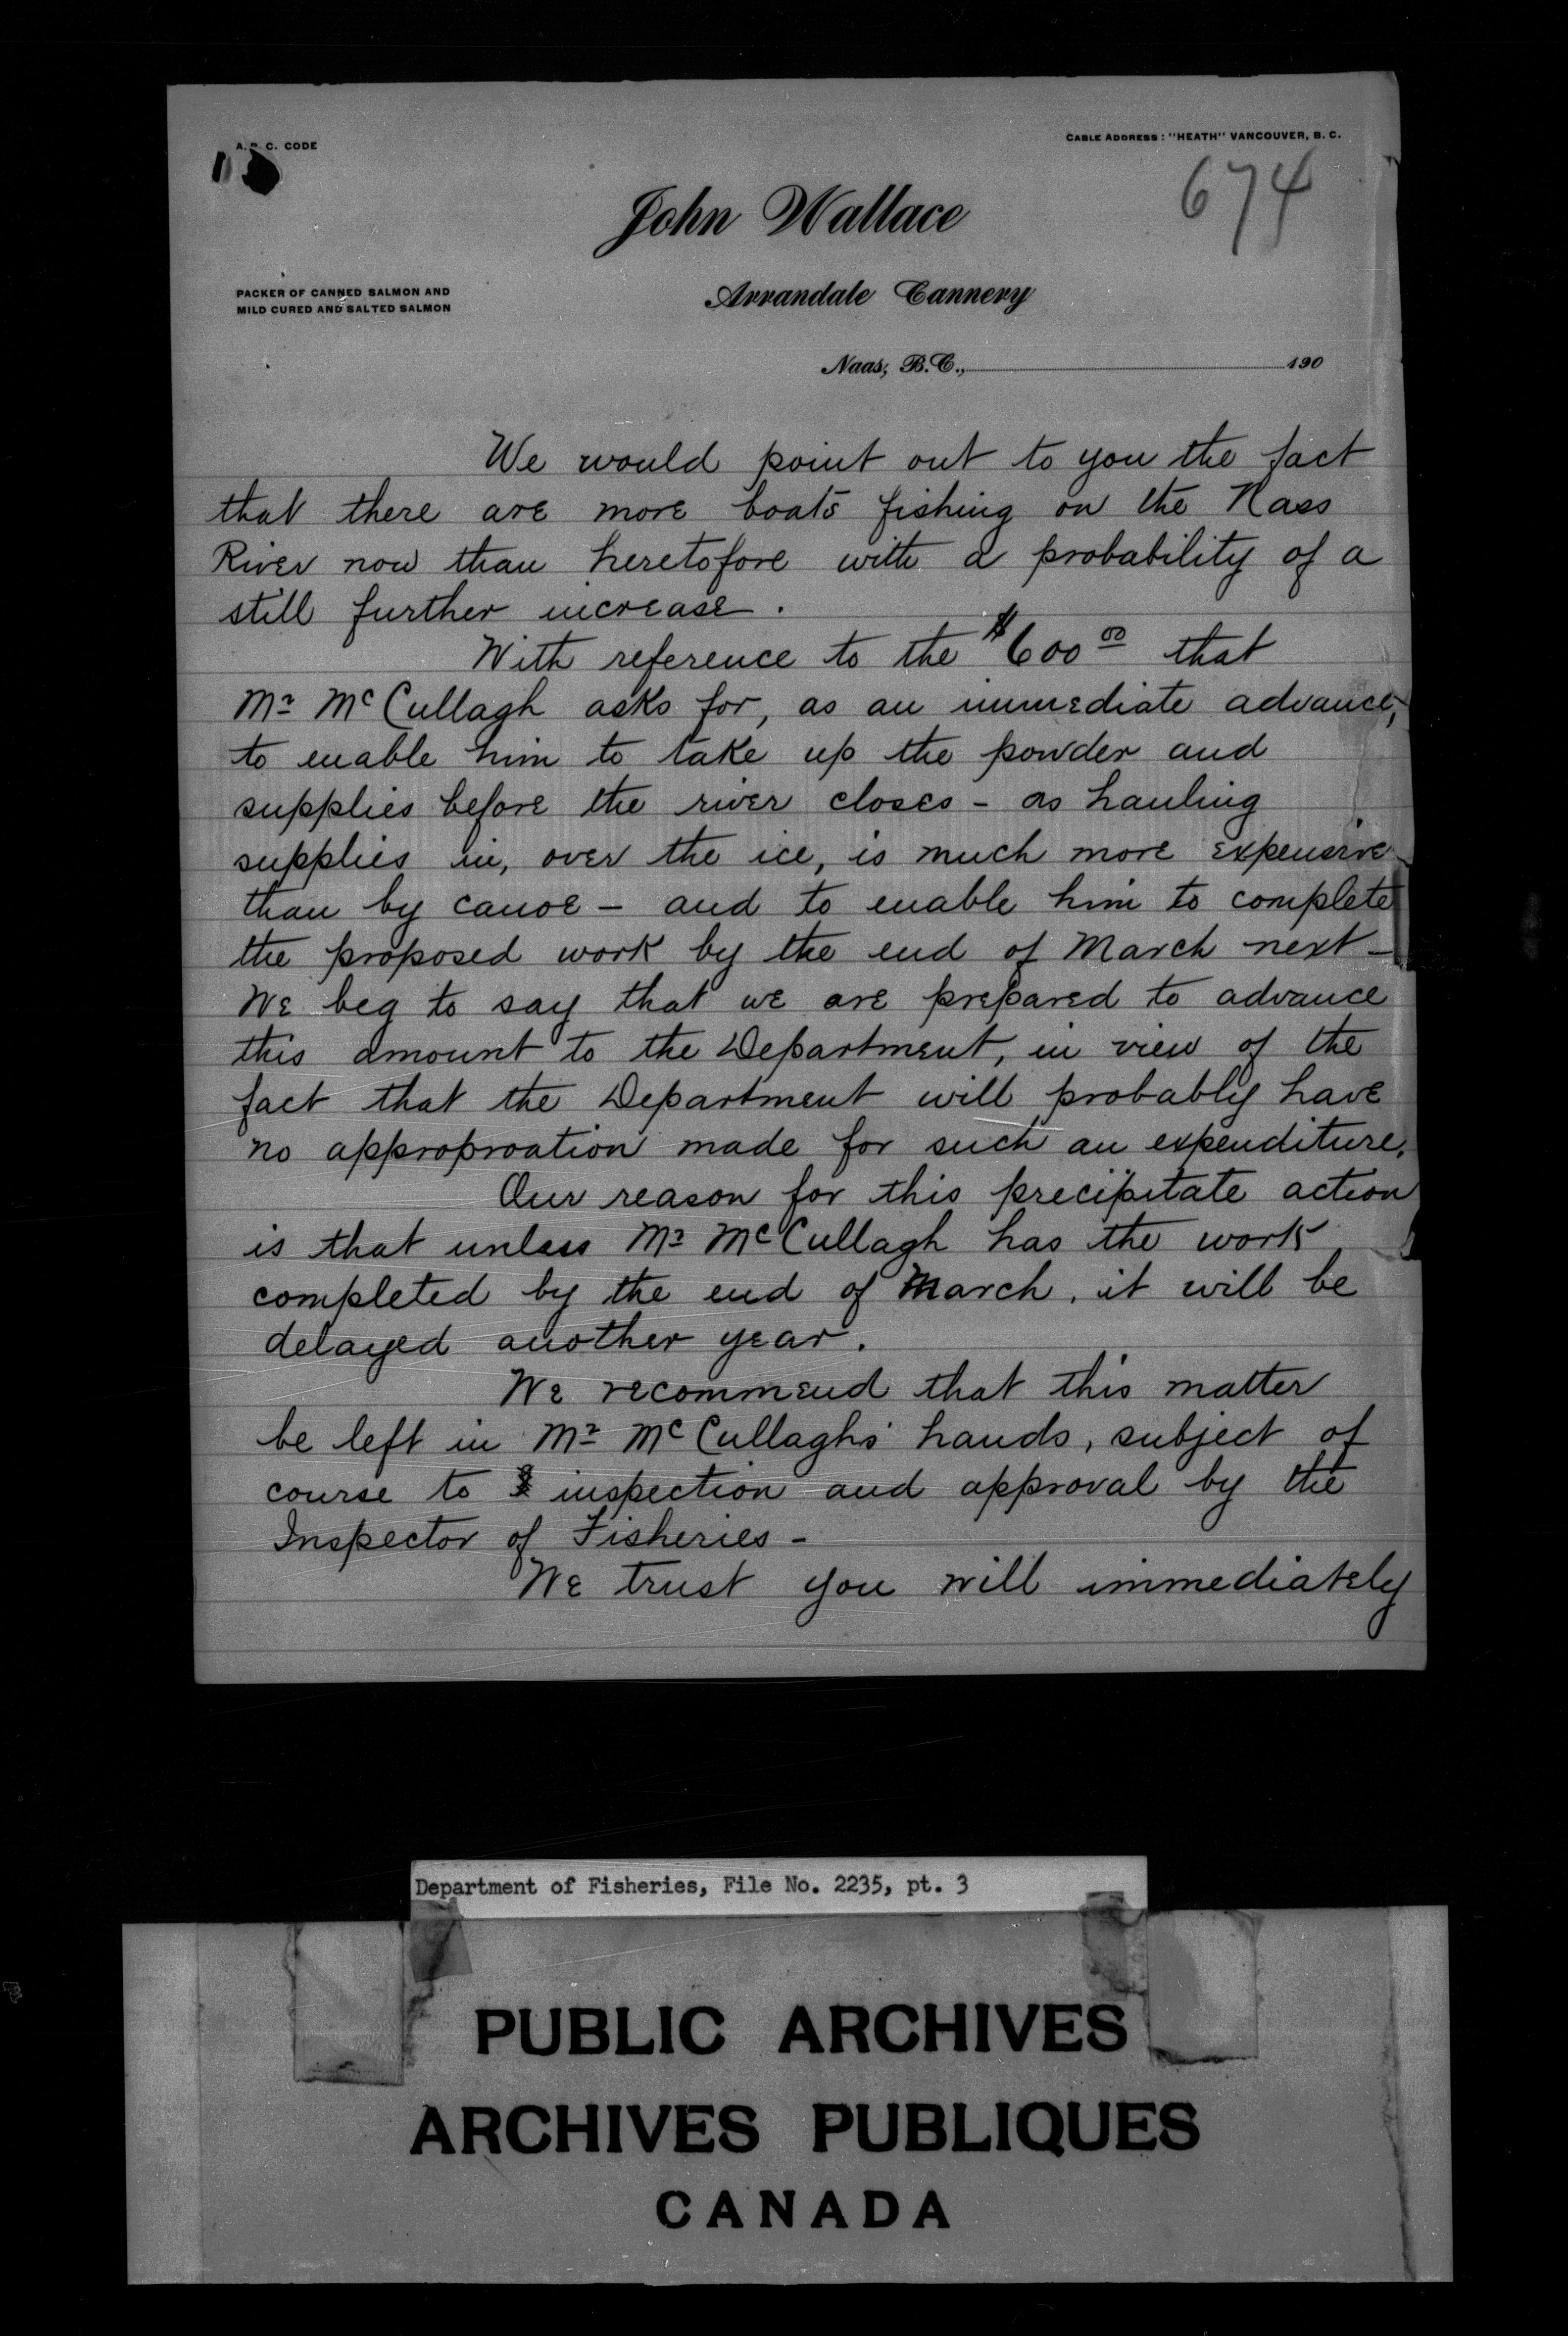 A. B. C. CODE
CABLE ADDRESS: "HEATH" VANCOUVER, B. C.
674
John Wallace
PACKER OF CANNED SALMON AND
MILD CURED AND SALTED SALMON
Arrandale Cannery
Naas, B.C., 190
We would point out to you the fact
that there are more boats fishing on the Nass
River now than heretofore with a probability of a
still further increase.
With reference to the $600 00 that
Mr McCullagh asks for, as an immediate advance,
to enable him to take up the powder and
supplies before the river closes - as hauling
supplies in, over the ice, is much more expensive
than by canoe - and to enable him to complete
the proposed work by the end of March next -
We beg to say that we are prepared to advance
this amount to the Department, in view of the
fact that the Department will probably have
no approproation made for such an expenditure.
Our reason for this precipitate action
is that unless Mr McCullagh has the work
completed by the end of March, it will be
delayed another year.
We recommend that this matter
be left in Mr McCullaghs' hands, subject of
course to inspection and approval by the
Inspector of Fisheries -
We trust you will immediately
Department of Fisheries, File No. 2235, pt. 3
PUBLIC ARCHIVES
ARCHIVES PUBLIQUES
CANADA